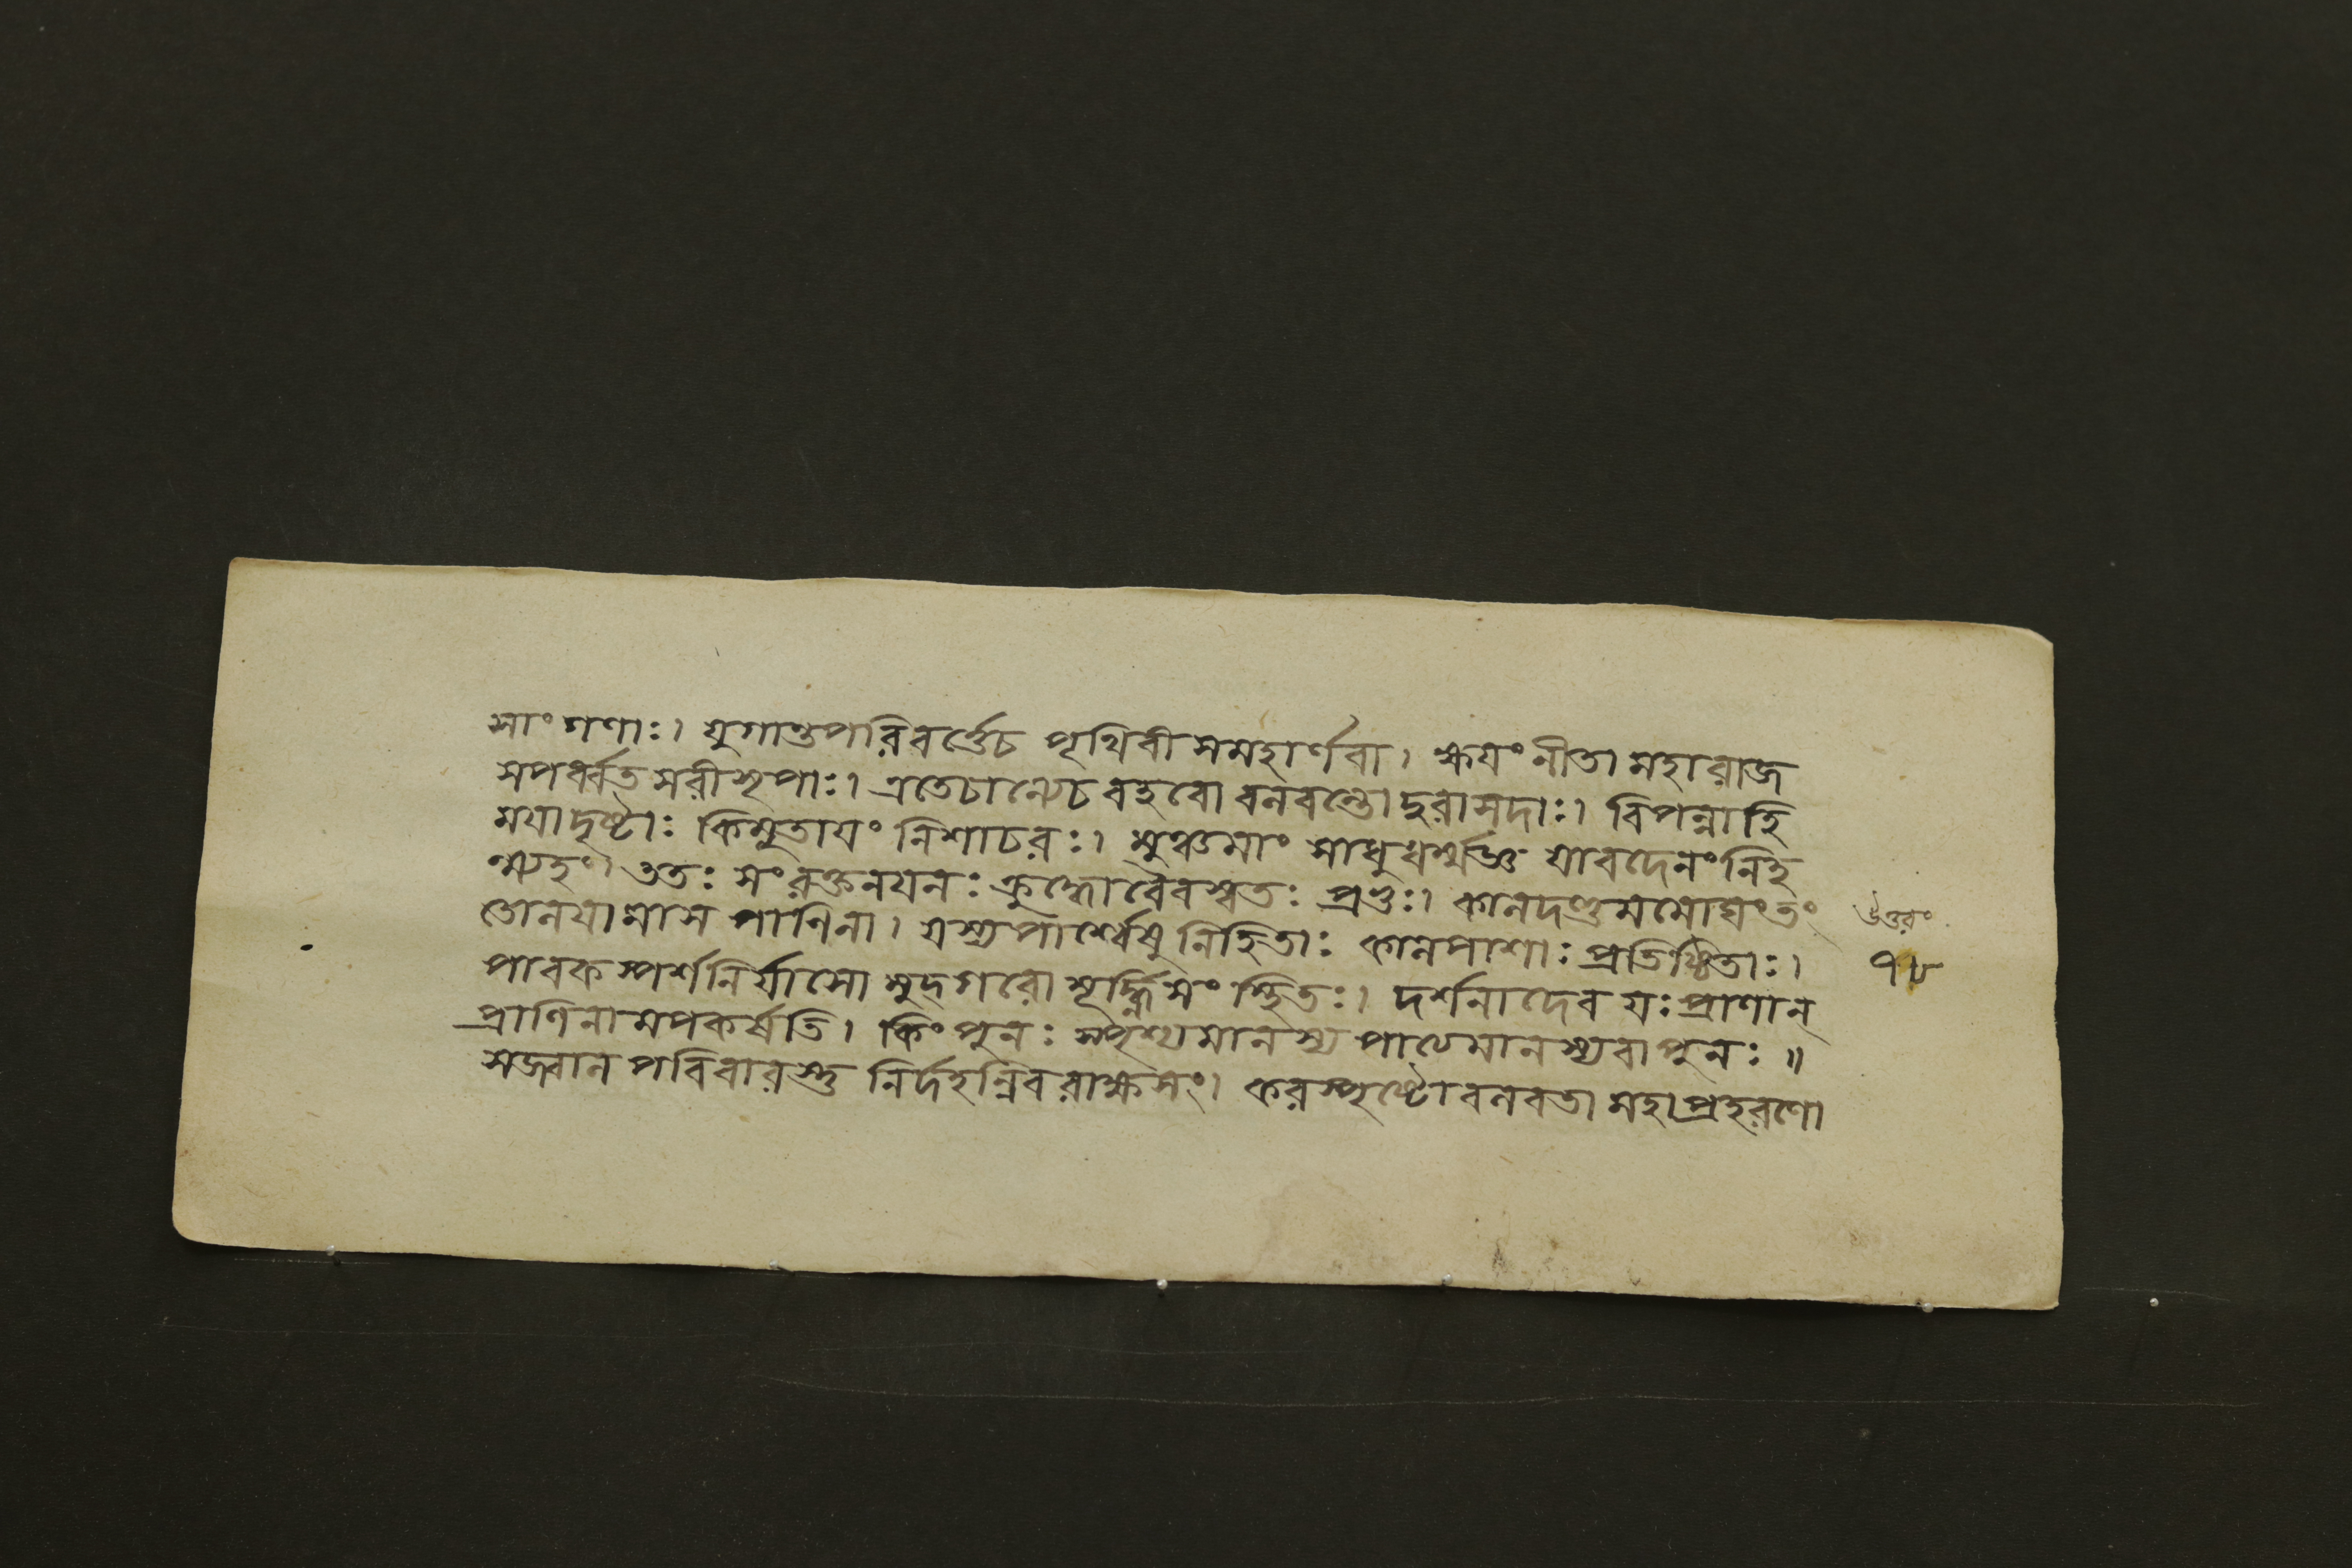 সাং গণাঃ। যুগান্তপরিবর্ত্তেচ পৃথিবী সমহার্ণবা। ক্ষয়ং নীতা মহারাজ
সপর্ব্বত সরীসৃপাঃ। এতেচান্যেচ বহবো বলবন্তো দুরাসদাঃ। বিপন্নাহি
ময়াদৃষ্টাঃ কিমুতায়ং নিশাচরঃ। মুঞ্চমাং সাধুধর্ম্মজ্ঞ যাবদেনংনিহ
ন্ম্যহং। ততঃ সংরক্তনয়নঃ ক্রুদ্ধোবৈবস্বতঃ প্রভুঃ। কালদণ্ডমমোঘংতং
তোলয়ামাস পাণিনা। যস্যপার্শ্বেষু নিহিতাঃ কালপাশাঃ প্রতিষ্ঠিতাঃ।
পাবকস্পর্শনির্যাসো মুদ্গরো মূর্দ্ধ্নিসংস্থিতঃ। দর্শনাদেব যঃ প্রাণান্
প্রাণিনামপকর্ষতি। কিং পুনঃ স্পৃশ্যমানস্য পাত্যমানস্যবা পুনঃ॥
সজ্বালপরিবারস্তু নির্দহন্নিবরাক্ষসং। করস্পৃষ্টোবলবতা মহাপ্রহরণো
উত্তরং
৭৮